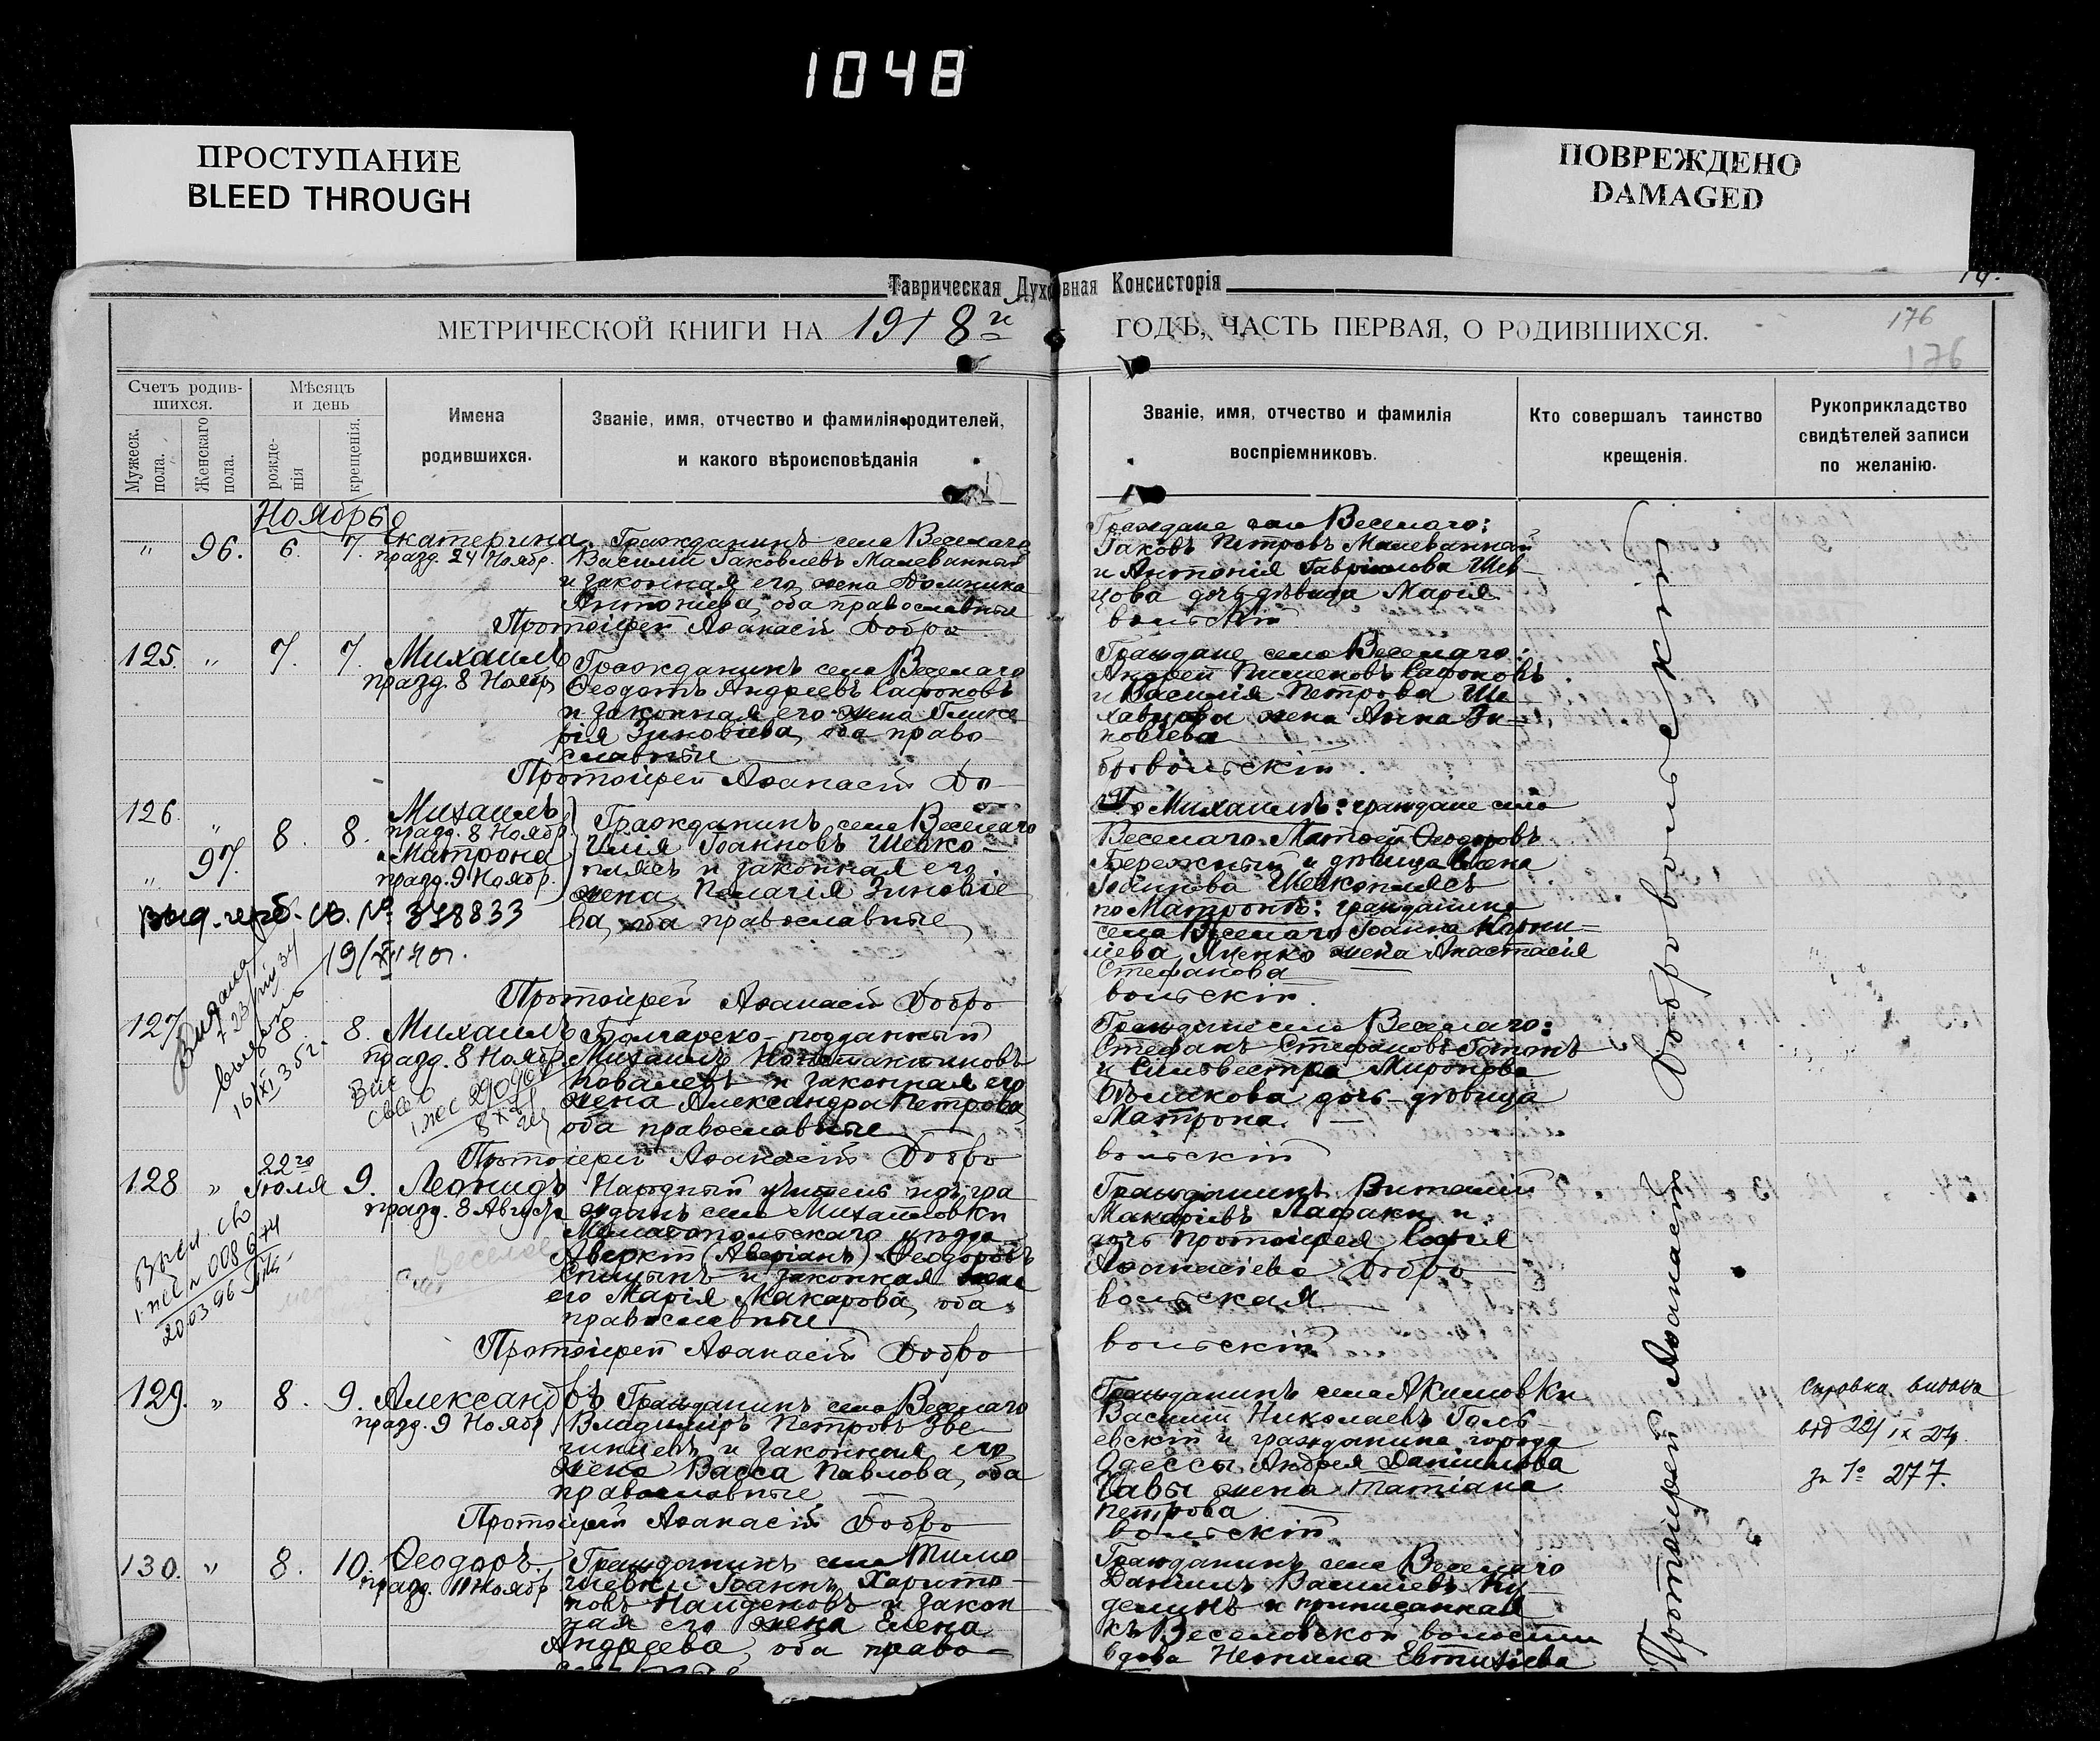 1048
ПРОСТУПАНИЕ
BLEED THROUGH
ПОВРЕЖДЕНО
DAMAGED
Таврическая Духовная Консисторія
МЕТРИЧЕСКОЙ КНИГИ НА 1918 й ГОДЪ, ЧАСТЬ ПЕРВАЯ, О РОДИВШИХСЯ.
176
176
Счетъ родив-
шихся.
Мужеск. пола.
Женскаго пола.
Мѣсяцъ
и день
рожде-
нія
крещенія.
Имена
родившихся.
Званіе, имя, отчество и фамилія родителей,
и какого вѣроисповѣданія
Званіе, имя, отчество и фамилія
воспріемниковъ.
Кто совершалъ таинство
крещенія.
Рукоприкладство
свидѣтелей записи
по желанію.
Ноябрь
" 96. 6. 7. Екатерина
празд. 24 Ноябр.
Гражданинъ села Веселаго
Василій Іаковлевъ Малеванный
и законная его жена Домника
Антоніева, оба православные
Граждане села Веселаго:
Іаковъ Петровъ Малеванный
и Антонія Гавріилова Шев-
цова дочь дѣвица Марія
Протоіерей Аѳанасій Добро
вольскій
125. " 7. 7. Михаилъ
празд. 8 Ноябр.
Гражданинъ села Веселаго
Ѳеодотъ Андреевъ Сафоновъ
и законная его жена Глике
рія Зиновіева, оба право
славные
Граждане села Веселаго:
Андрей Пименовъ Сафоновъ
и Василія Петрова Ше
хавцова жена Анна Зи-
новіева
Протоіерей Аѳанасій До-
бровольскій.
126. " 8. 8. Михаилъ
празд. 8 Ноябр.
" 97. Матрона
празд. 9 Ноябр.
Гражданинъ села Веселаго
Илія Іоанновъ Шевко-
плясъ и законная его
жена Пелагія Зиновіе
ва, оба православные
По Михаилѣ: граждане села
Веселаго Матѳей Ѳеодоровъ
Бережный и дѣвица Елена
Іоаннова Шевкоплясъ
по Матронѣ: гражданина
села Веселаго Іоанна Корни-
ліева Яценко жена Анастасія
Стефанова
выд. герб. св. № 378833
Протоіерей Аѳанасій Добро
вольскій.
127 8 8. Михаилъ
празд. 8 Ноябр.
Болгарско-подданный
Михаилъ Константиновъ
Ковалевъ и законная его
жена Александра Петрова,
оба православные
Граждане села Веселаго:
Стефанъ Стефановъ
и Сильвестра Миронова
Бѣликова дочь-дѣвица
Матрона.
Протоіерей Аѳанасій Добро
вольскій
128 " 22го Іюля 9. Леонидъ
празд. 8 Августа
Народный учитель изъ гра
жданъ села Михайловки
Мелитопольскаго уѣзда
Аверкій (Аверіанъ) Ѳеодоровъ
Спицынъ и законная жена
его Марія Макарова, оба
православные
Гражданинъ Виталій
Макаріевъ Лафаки и
дочь протоіерея Софія
Аѳанасіева Добро
вольская
20.03.96
Протоіерей Аѳанасій Добро
вольскій
129. " 8. 9. Александръ
празд. 9 Ноябр.
Гражданинъ села Веселаго
Владиміръ Петровъ Зве
гинцевъ и законная его
жена Васса Павлова, оба
православные
Гражданинъ села Акимовки
Василій Николаевъ Голь-
евскій и гражданина города
Одессы Андрея Даніилова
Савы жена Татіана
Петрова
Справка видана
від 22/IX 27.
за № 277.
Протоіерей Аѳанасій Добро
вольскій
130. " 8. 10. Ѳеодоръ.
празд. 11 Ноябр.
Гражданинъ села Тимо
шевки Іоаннъ Харито
новъ Найденовъ и закон
ная его жена Елена
Андреева, оба право-
Гражданинъ села Веселаго
Даніилъ Василіевъ Ку
делинъ и приписанная
къ Веселовской волости
вдова Неонила Евтихіева
Протоіерей Аѳанасій Добровольскій